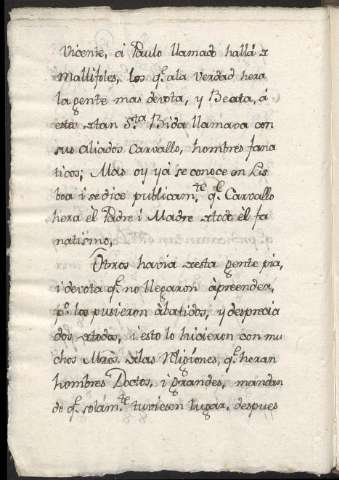 Vicente, ó Paulo llamado hallá
Mallifoles, los q.e ala verdad hera
la gente mas devota, y Beata, á
esta tan S.ta Bida llamava con
sus aliados Carvallo, hombres fana
ticos; Mas oy yá se conoce en Lis
boa i se dice publicam.te q.e Carvallo
hera el Padre i Madre de todo el fa
natismo.
Otros havia desta gente pia,
i devota q.e no llegaron áprender,
p.o los pusieron ábatidos, y desprecia
dos de todos, i esto lo hicieron con mu
chos Mros. de las Religiones, q.e heran
hombres Doctos, i grandes, mandan
do q.e solam.te tuviesen lugar, despues